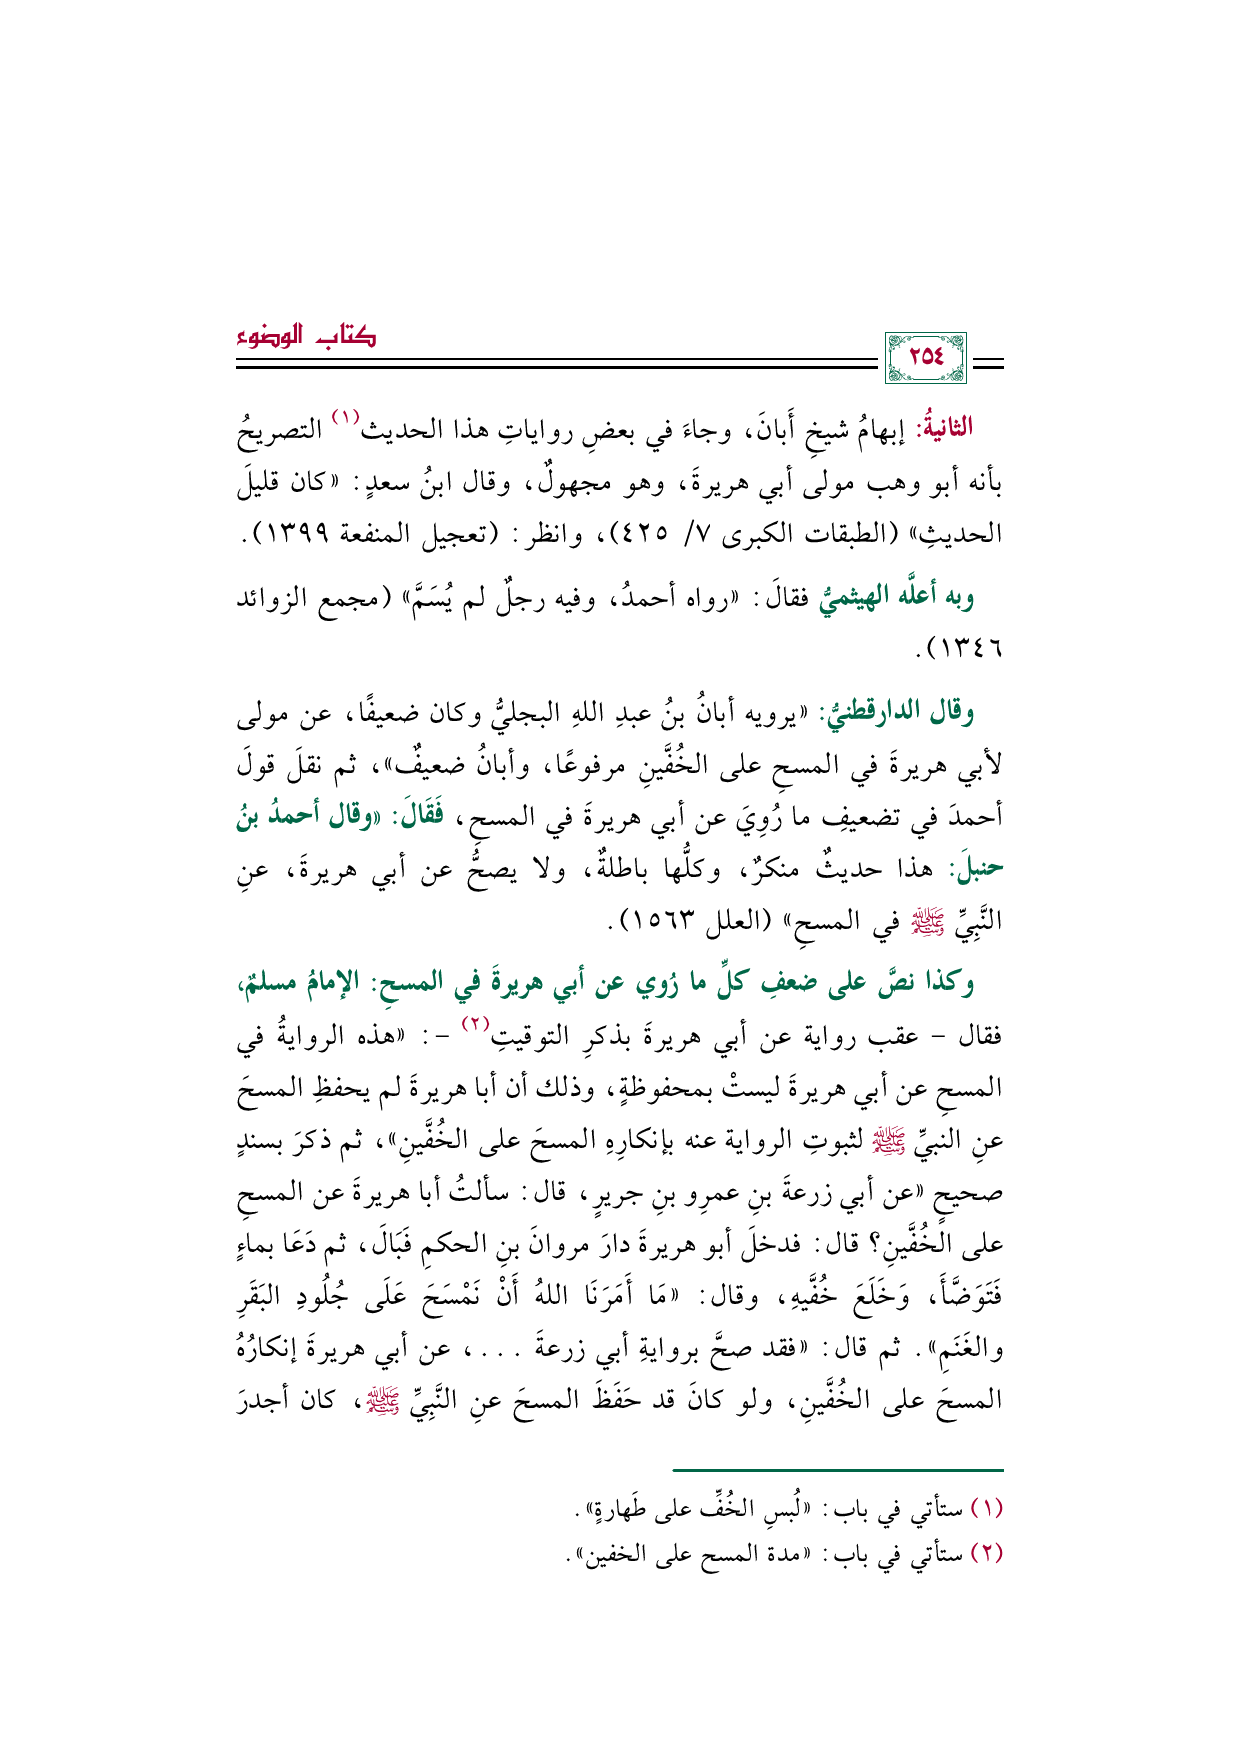 كتاب الوضوء
٢٥٤
الثانيةُ: إبهامُ شيخِ أَبانَ، وجاءَ في بعضِ رواياتِ هذا الحديث(١) التصريحُ
بأنه أبو وهب مولى أبي هريرةَ، وهو مجهولٌ، وقال ابنُ سعدٍ: «كان قليلَ
الحديثِ» (الطبقات الكبرى ٧/ ٤٢٥)، وانظر: (تعجيل المنفعة ١٣٩٩).
وبه أعلَّه الهيثميُّ فقالَ: «رواه أحمدُ، وفيه رجلٌ لم يُسَمَّ» (مجمع الزوائد
١٣٤٦).
وقال الدارقطنيُّ: «يرويه أبانُ بنُ عبدِ اللهِ البجليُّ وكان ضعيفًا، عن مولى
لأبي هريرةَ في المسحِ على الخُفَّينِ مرفوعًا، وأبانُ ضعيفٌ»، ثم نقلَ قولَ
أحمدَ في تضعيفِ ما رُوِيَ عن أبي هريرةَ في المسحِ، فَقَالَ: «وقال أحمدُ بنُ
حنبلَ: هذا حديثٌ منكرٌ، وكلُّها باطلةٌ، ولا يصحُّ عن أبي هريرةَ، عنِ
النَّبِيِّ ﷺ في المسحِ» (العلل ١٥٦٣).
وكذا نصَّ على ضعفِ كلِّ ما رُوي عن أبي هريرةَ في المسحِ: الإمامُ مسلمٌ،
فقال – عقب رواية عن أبي هريرةَ بذكرِ التوقيتِ(٢) –: «هذه الروايةُ في
المسحِ عن أبي هريرةَ ليستْ بمحفوظةٍ، وذلك أن أبا هريرةَ لم يحفظِ المسحَ
عنِ النبيِّ ﷺ لثبوتِ الرواية عنه بإنكارِهِ المسحَ على الخُفَّينِ»، ثم ذكرَ بسندٍ
صحيحٍ «عن أبي زرعةَ بنِ عمرِو بنِ جريرٍ، قال: سألتُ أبا هريرةَ عن المسحِ
على الخُفَّينِ؟ قال: فدخلَ أبو هريرةَ دارَ مروانَ بنِ الحكمِ فَبَالَ، ثم دَعَا بماءٍ
فَتَوَضَّأَ، وَخَلَعَ خُفَّيهِ، وقال: «مَا أَمَرَنَا اللهُ أَنْ نَمْسَحَ عَلَى جُلُودِ البَقَرِ
والغَنَمِ». ثم قال: «فقد صحَّ بروايةِ أبي زرعةَ ...، عن أبي هريرةَ إنكارُهُ
المسحَ على الخُفَّينِ، ولو كانَ قد حَفَظَ المسحَ عنِ النَّبِيِّ ﷺ، كان أجدرَ
(١) ستأتي في باب: «لُبسِ الخُفِّ على طَهارةٍ».
(٢) ستأتي في باب: «مدة المسح على الخفين».